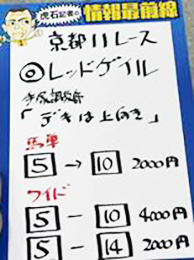 虎石記者の
情報最前線
京都11レース
◎レッドゲイル
「デキは上向き」
馬単
5→10 2000円
ワイド
5-10 4000円
5-14 2000円